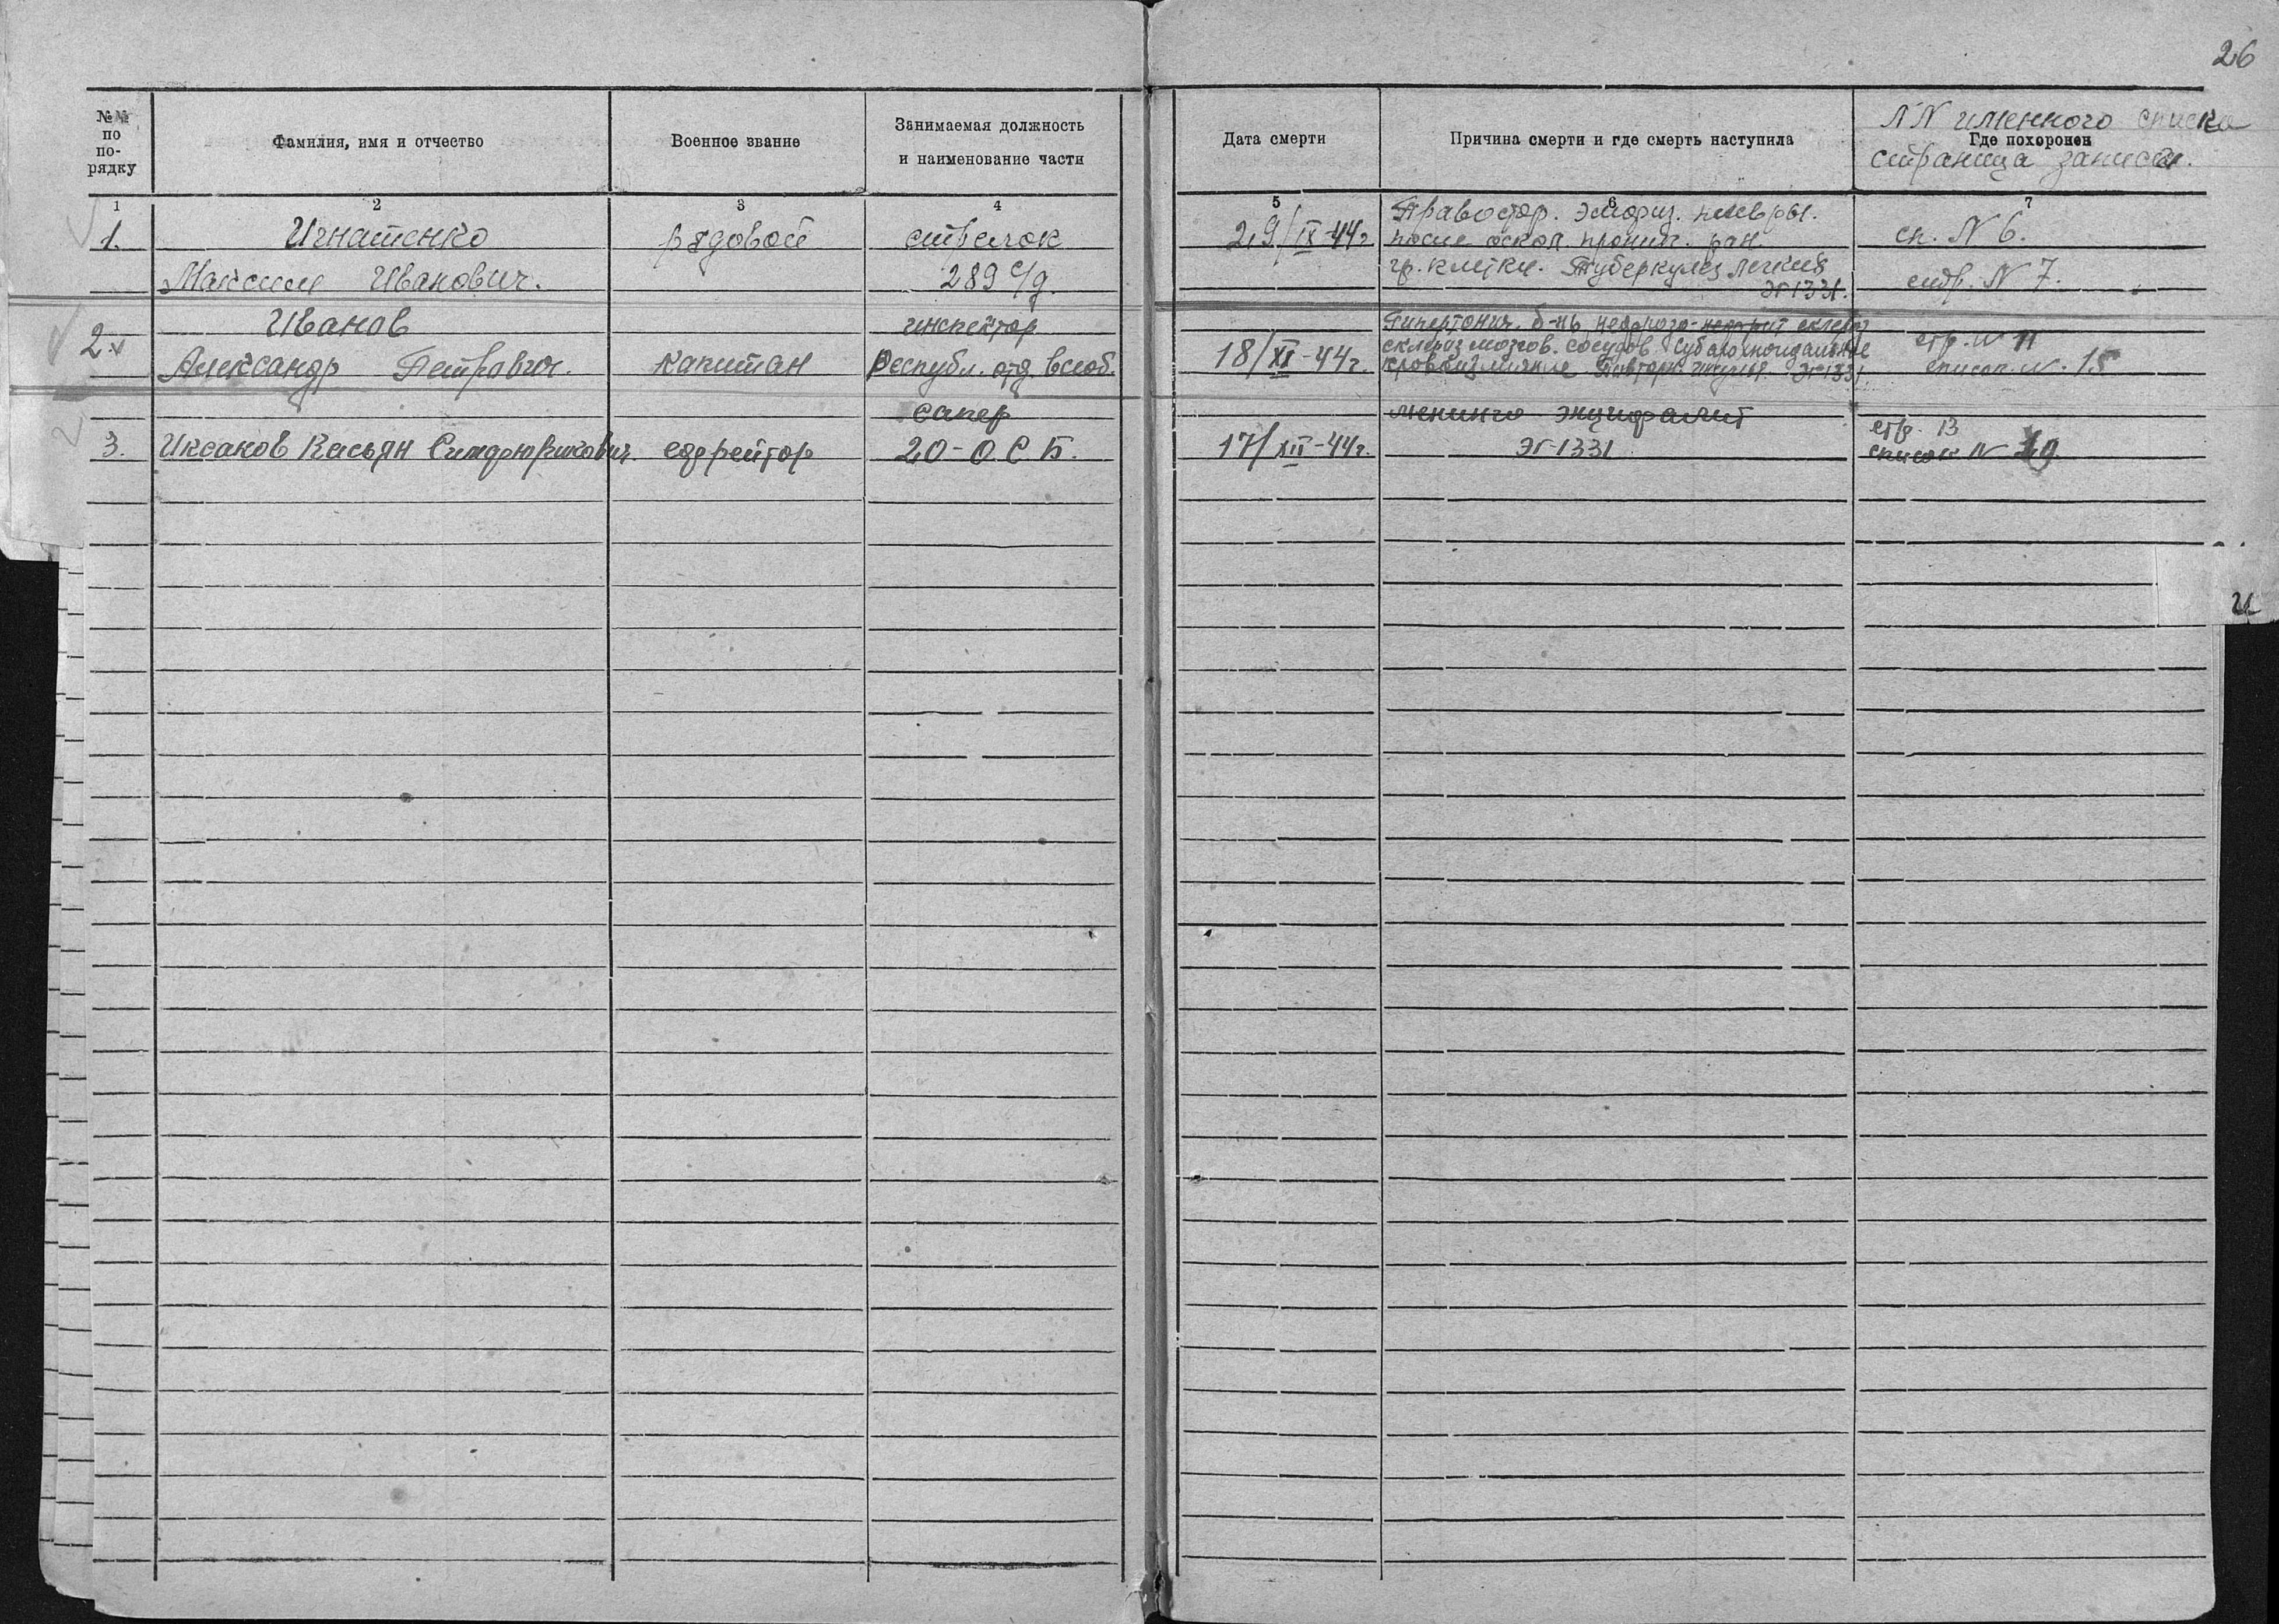 26
№№ по по-рядку
Фамилия, имя и отчество
Военное звание
Занимаемая должность и наименование части
Дата смерти
Причина смерти и где смерть наступила
NN именного списка
Где похоронен
страница записи.
1 2 3 4 5 6 7
1. Игнатенко рядовой стрелок 29/IX-44г. Правостор. плевры. сп. N 6.
Максим Иванович. 289 с/д. после оскол. проник. ран.
гр. клетки. Туберкулез легких стр. N 7.
ЭГ1331.
2. Иванов инспектор Гипертонич. б-нь, стр. N 11
Александр Петрович. капитан Республ. отд. всеоб. 18/XI-44г. склероз мозгов. сосудов. субарахноидальное список. N. 15
кровоизлияние ЭГ1331.
сапер менинго энцефалит стр. 13
3. Иксанов Касьян ефрейтор 20-ОСБ. 17/XII-44г. ЭГ-1331 список N 19
И